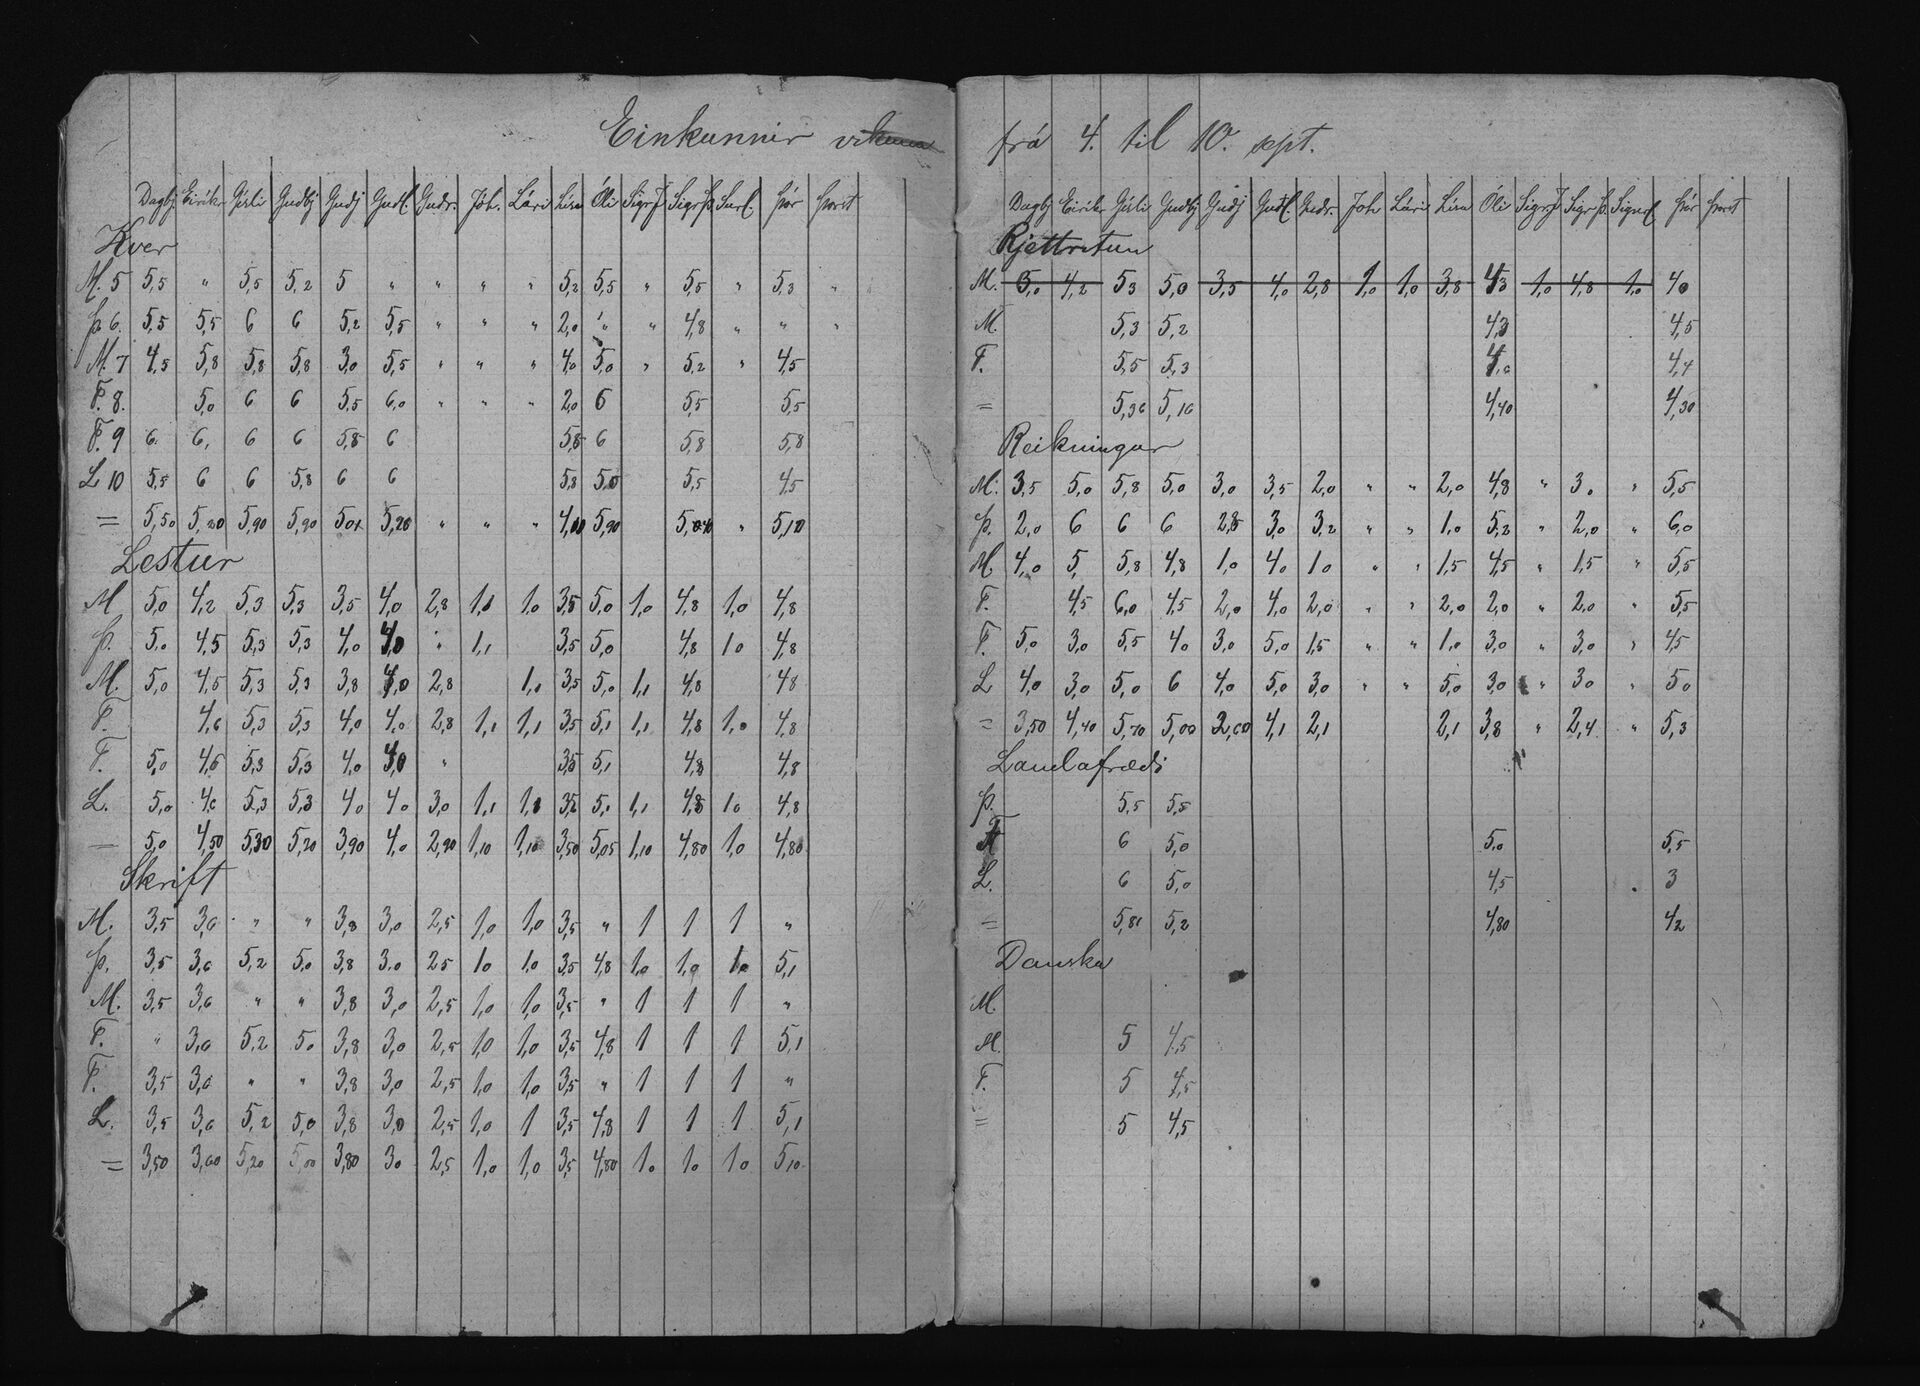 Einkunnir
Dagbj. Eirikr Gisli Gudbj Gudj Gudl. Gudr. Jóh. Lári Lisa Óli Sigr J Sigr Þ. Þór Þorst
Kver
M. 5 5,5 " 5,5 5,2 5 " " " " 5,2 5,5 " 5,5 " 5,3 "
Þ 6. 5,5 5,5 6 6 5,2 5,5 " " " 2,0 " " 4,8 " " "
M. 7 4,5 5,8 5,8 5,8 3,0 5,5 " " " 4,0 5,0 " 5,2 " 4,5
F. 8. 5,0 6 6 5,5 6,0 " " " 2,0 6 5,5 5,5
F. 9 6. 6, 6 6 5,8 6 5,8 6 5,8 5,8
L 10 5,5 6 6 5,8 6 6 5,8 5,0 5,5 4,5
= 5,50 5,90 5,90 5,20 " " " 5,90 " 5,10
Lestur
M 5,0 4,2 5,3 5,3 3,5 4,0 2,8 1,1 1,0 3,5 5,0 1,0 4,8 1,0 4,8
Þ. 5,0 4,5 5,3 5,3 4,0 4,0 " 1,1 3,5 5,0 4,8 1,0 4,8
M. 5,0 4,5 5,3 5,3 3,8 4,0 2,8 1,0 3,5 5,0 1,1 4,8 4,8
F. 4,6 5,3 5,3 4,0 4,0 2,8 1,1 1,1 3,5 5,1 1,1 4,8 1,0 4,8
F. 5,0 4,6 5,3 5,3 4,0 4,0 " 3,5 5,1 4,8 4,8
L. 5,0 4,6 5,3 5,3 4,0 4,0 3,0 1,1 1,1 3,5 5,0 1,1 4,8 1,0 4,8
— 5,0 4,50 5,30 5,20 3,90 4,0 2,90 1,10 1,10 3,50 5,05 1,10 4,80 1,0 4,80
Skrift
M. 3,5 3,6 " " 3,8 3,0 2,5 1,0 1,0 3,5 " 1 1 1 "
Þ. 3,5 3,6 5,2 5,0 3,8 3,0 2,5 1,0 1,0 3,5 4,8 1,0 1,0 1,0 5,1
M. 3,5 3,6 " " 3,8 3,0 2,5 1,0 1,0 3,5 " 1 1 1 "
F. " 3,6 5,2 5,0 3,8 3,0 2,5 1,0 1,0 3,5 4,8 1 1 1 5,1
F. 3,5 3,6 " " 3,8 3,0 2,5 1,0 1,0 3,5 " 1 1 1 "
L. 3,5 3,6 5,2 5,0 3,8 3,0 2,5 1,0 1 3,5 4,8 1 1 1 5,1
= 3,50 3,60 5,20 5,00 3,80 3,0 2,5 1,0 1,0 3,5 4,80 1,0 1,0 1,0 5,10
frá 4. til 10. sept.
Dagbj Eirikr Gisli Gudbj Gudj Gudl. Gudr. Joh Lári Lisa Óli Sigr J Sigr Þ. Þór Þorst
Rjettritun
M. 5,0 4,2 5,3 5,0 3,5 4,0 2,8 1,0 1,0 3,8 4,3 1,0 4,8 1,0 4,0
M. 5,3 5,2 4,3 4,5
F. 5,5 5,3 4,6 4,4
= 5,36 5,16 4,40 4,30
Reikningur
M. 3,5 5,0 5,8 5,0 3,0 3,5 2,0 " " 2,0 4,8 " 3,0 " 5,5
Þ. 2,0 6 6 6 2,8 3,0 3,2 " " 1,0 5,2 " 2,0 " 6,0
M. 4,0 5, 5,8 4,8 1,0 4,0 1,0 " " 1,5 4,5 " 1,5 " 5,5
F. 4,5 6,0 4,5 2,0 4,0 2,0 " " 2,0 2,0 " 2,0 " 5,5
F. 5,0 3,0 5,5 4,0 3,0 5,0 1,5 " " 1,0 3,0 " 3,0 " 4,5
L 4,0 3,0 5,0 6 4,0 5,0 3,0 " " 5,0 3,0 " 3,0 " 5,0
= 3,50 4,40 5,70 5,00 2,60 4,1 2,1 2,1 3,8 " 2,4 " 5,3
Landafrædi
Þ. 5,5 5,5
F 6 5,0 5,0 5,5
L. 6 5,0 4,5 3
= 5,81 5,2 4,80 4,2
Danska
M.
M. 5 4,5
F. 5 4,5
= 5 4,5